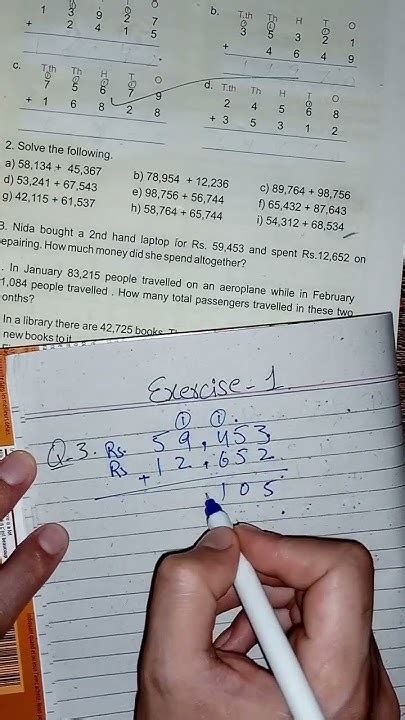 1 3 9 2 7
+ 2 4 1 5
b. T.th Th H T O
3 5 3 2 1
+ 4 6 4 9
c. T.th Th H T O
7 5 6 7 9
+ 1 6 8 2 8
d. T.th Th H T O
2 4 5 6 8
+ 3 5 3 1 2
2. Solve the following.
a) 58,134 + 45,367 b) 78,954 + 12,236 c) 89,764 + 98,756
d) 53,241 + 67,543 e) 98,756 + 56,744 f) 65,432 + 87,643
g) 42,115 + 61,537 h) 58,764 + 65,744 i) 54,312 + 68,534
3. Nida bought a 2nd hand laptop for Rs. 59,453 and spent Rs.12,652 on
epairing. How much money did she spend altogether?
. In January 83,215 people travelled on an aeroplane while in February
1,084 people travelled . How many total passengers travelled in these two
onths?
In a library there are 42,725 books.
new books to it
Exercise-1
1 1
Q3. Rs. 59,453
Rs +12,652
105